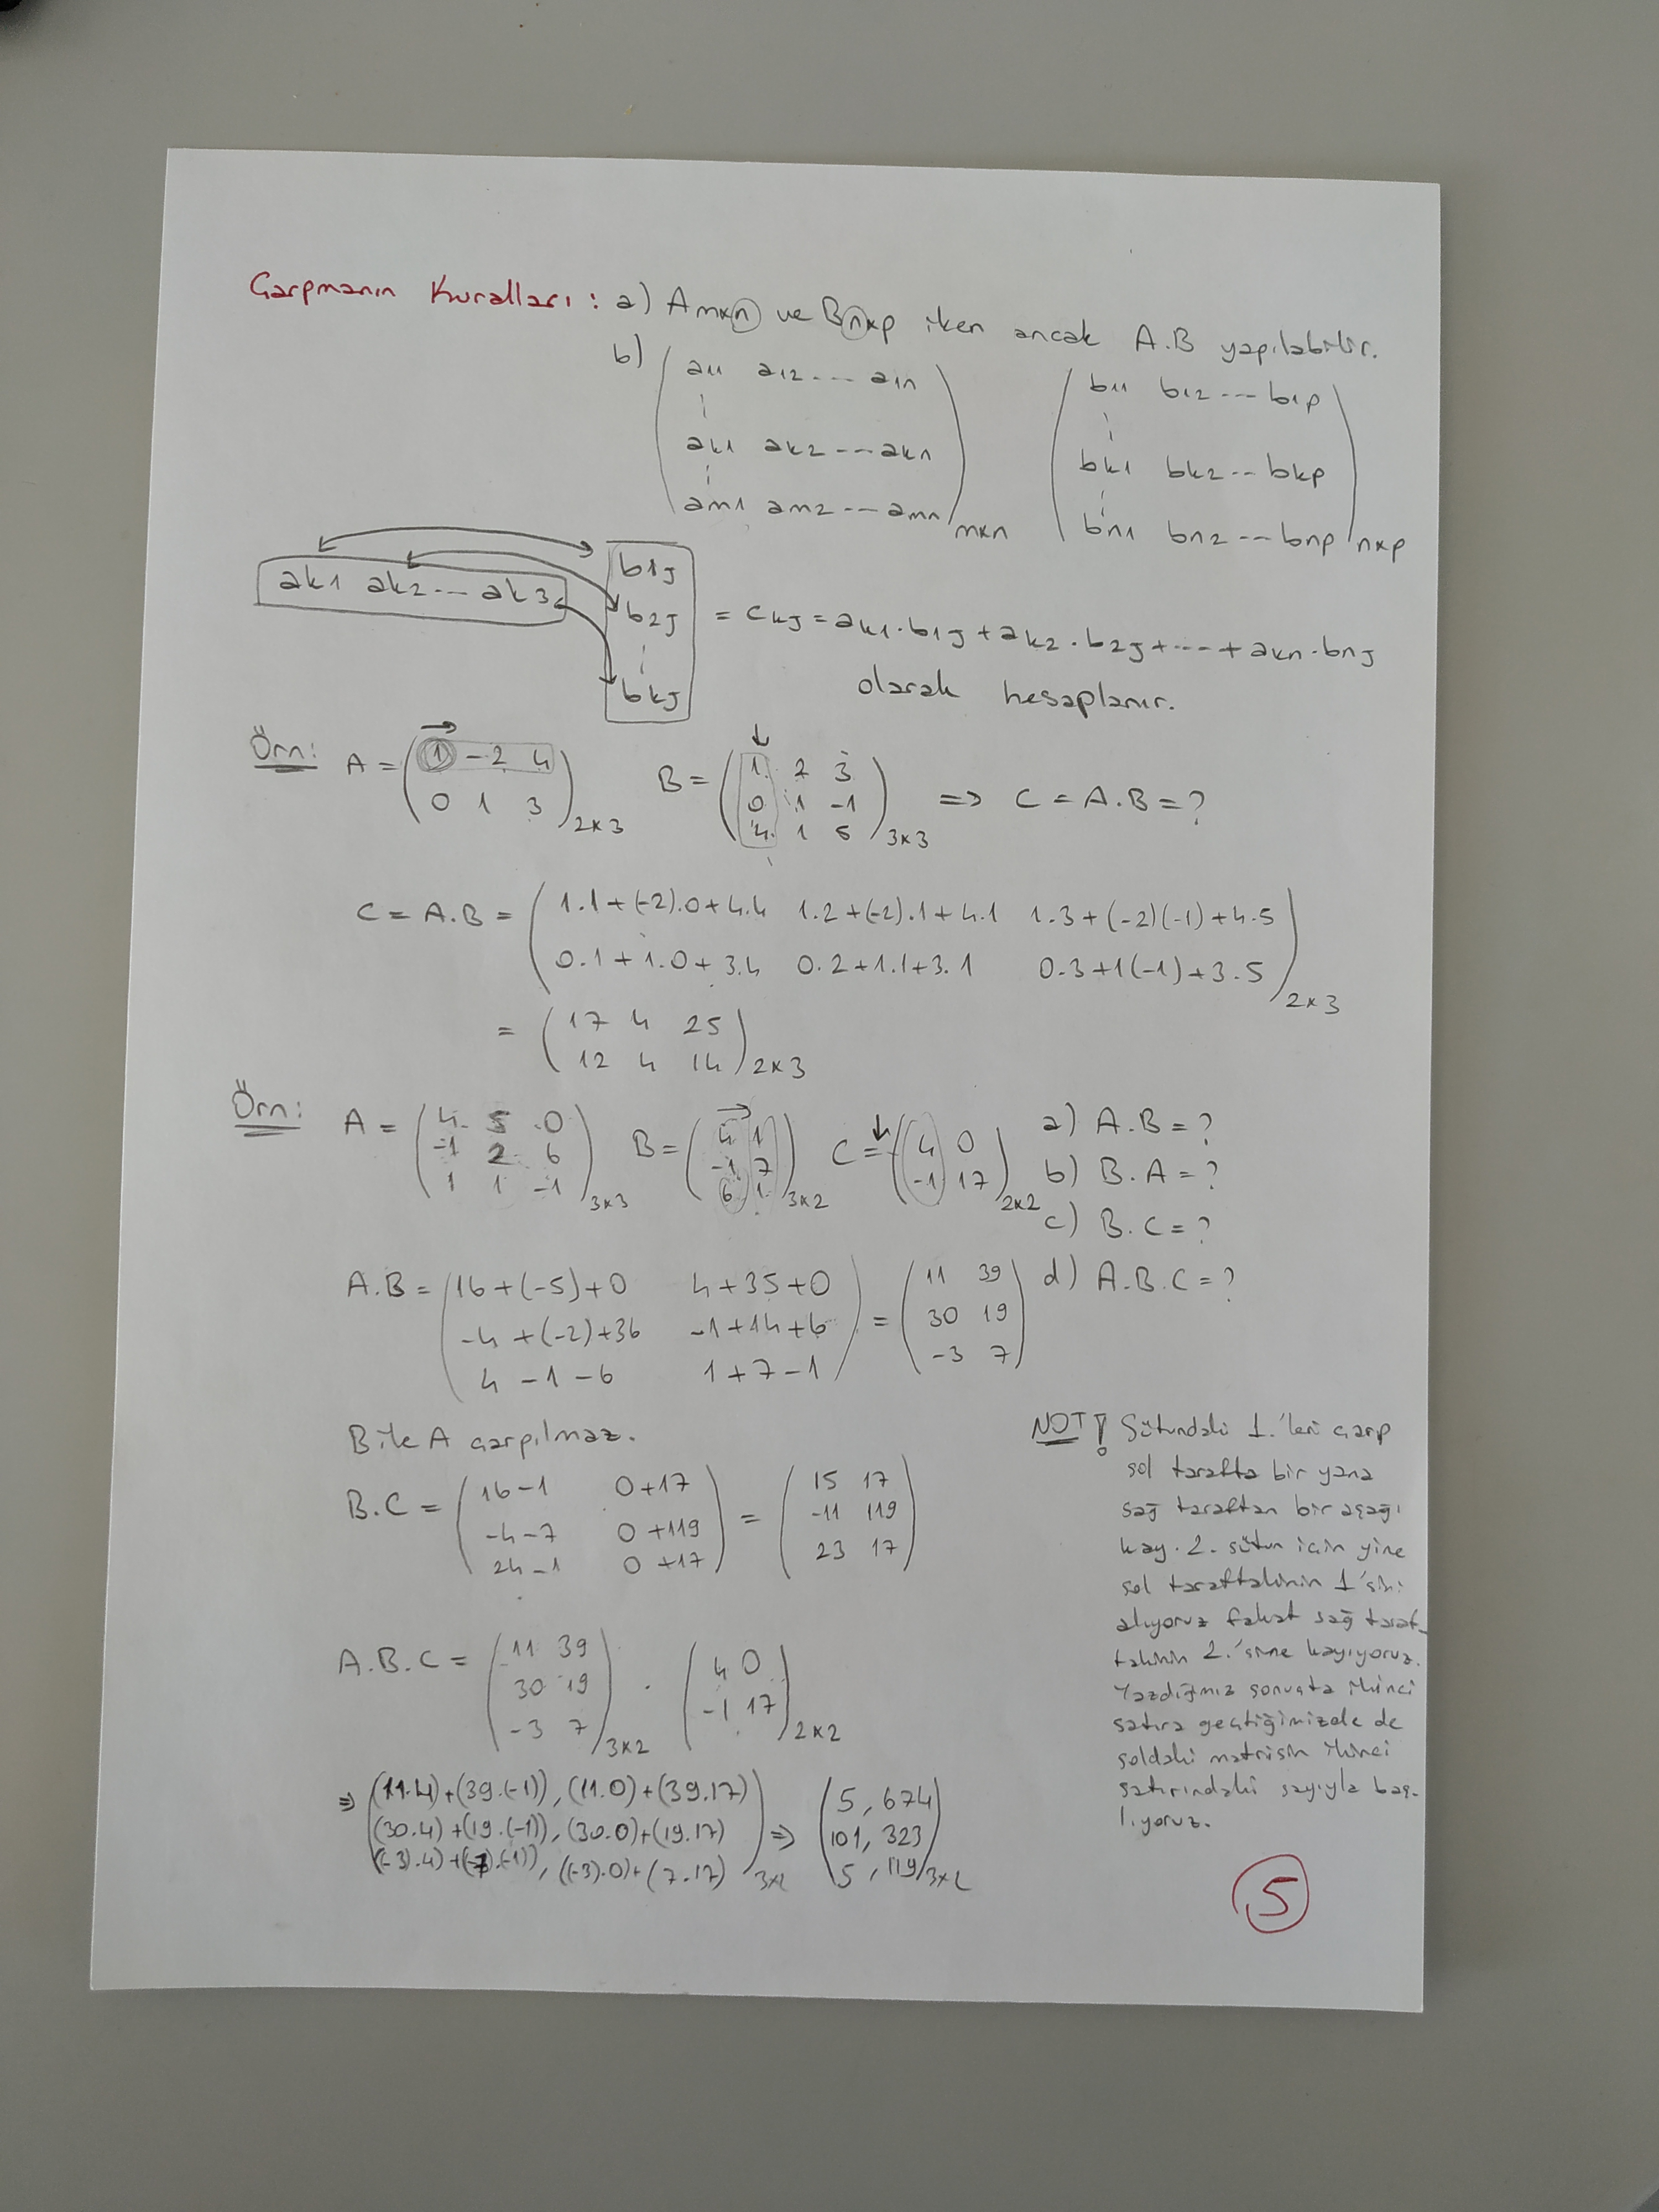 Çarpmanın Kuralları: a) Amxn ve Bnxp iken ancak A.B yapılabilir.
b) (a11 a12 --- a1n) (b11 b12 --- b1p)
(ak1 ak2 --- akn) (bk1 bk2 -- bkp)
(am1 am2 --- amn)mxn (bn1 bn2 --- bnp)nxp
ak1 ak2 --- ak3 b1j b2j bkj = ckj = ak1.b1j + ak2.b2j + --- + akn.bnj
olarak hesaplanır.
Örn: A = (1 -2 4 B = (1 2 3
0 1 3)2x3 0 1 -1
4 1 5)3x3 => C = A.B = ?
C = A.B = (1.1+(-2).0+4.4 1.2+(-2).1+4.1 1.3+(-2)(-1)+4.5
0.1+1.0+3.4 0.2+1.1+3.1 0.3+1(-1)+3.5)2x3
= (17 4 25
12 4 14)2x3
Örn: A = (4 5 0 B = (4 1 C = (4 0 a) A.B = ?
-1 2 6 -1 7 -1 17)2x2 b) B.A = ?
1 1 -1)3x3 6 1)3x2 c) B.C = ?
d) A.B.C = ?
A.B = (16+(-5)+0 4+35+0 = (11 39
-4+(-2)+36 -1+14+6 30 19
4-1-6 1+7-1) -3 7)
B ile A çarpılmaz.
B.C = (16-1 0+17 = (15 17
-4-7 0+119 -11 119
24-1 0+17) 23 17)
A.B.C = (11 39 . (4 0
30 19 -1 17)2x2
-3 7)3x2
=> ((11.4)+(39.(-1)), (11.0)+(39.17)
(30.4)+(19.(-1)), (30.0)+(19.17) => (5, 674
(-3).4)+(7.(-1)), ((-3).0)+(7.17))3x2 101, 323
5, 119)3x2
NOT! Sütundaki 1.'leri çarp
sol tarafta bir yana
sağ taraftan bir aşağı
kay. 2. sütun için yine
sol taraftakinin 1'sini
alıyoruz fakat sağ taraf
takinin 2.'sine kayıyoruz.
Yazdığımız sonuçta ikinci
satıra geçtiğimizde de
soldaki matrisin ikinci
satırındaki sayıyla baş-
lıyoruz.
5